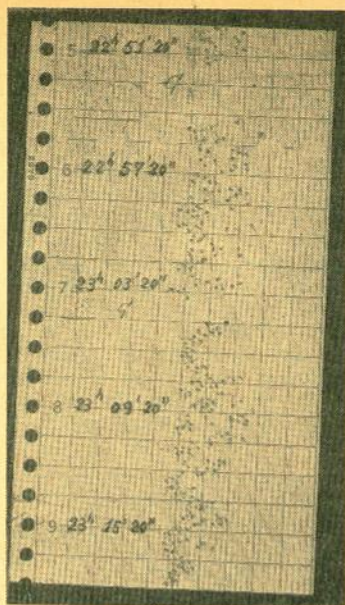 5 22ʰ 51' 20"
6 22ʰ 57' 20"
7 23ʰ 03' 20"
8 23ʰ 09' 20"
9 23ʰ 15' 20"